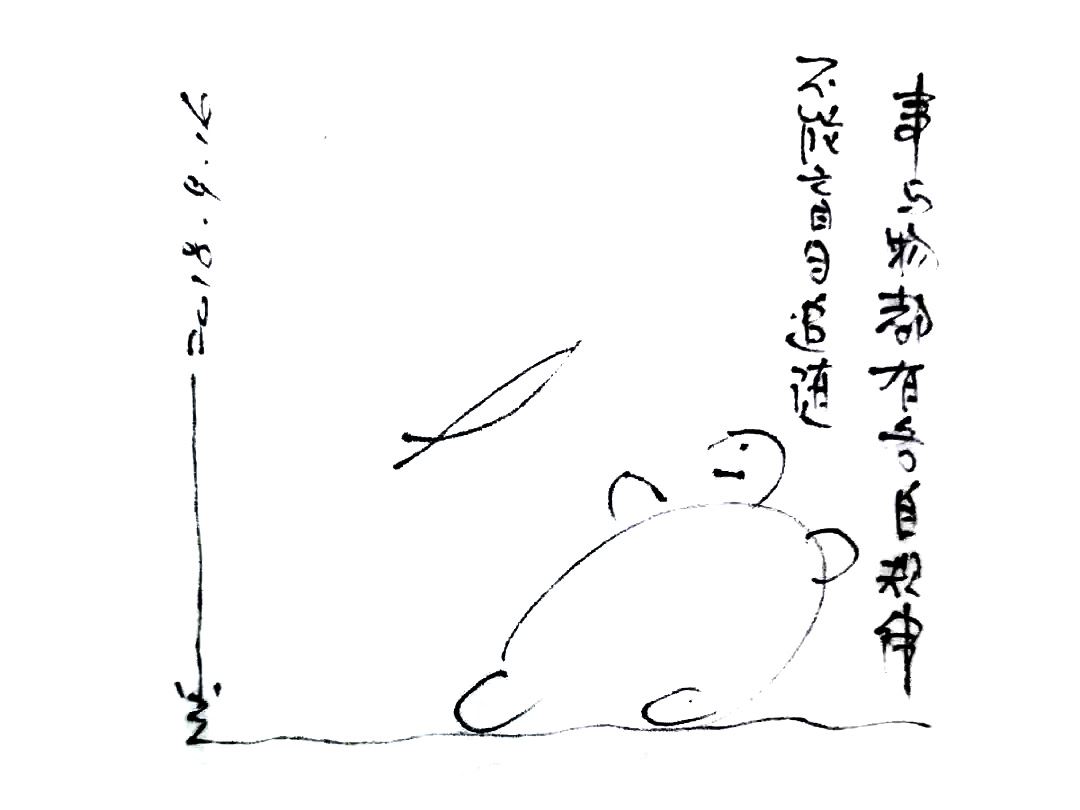 事与物都有各自规律
不能盲目追随
2018.9.16